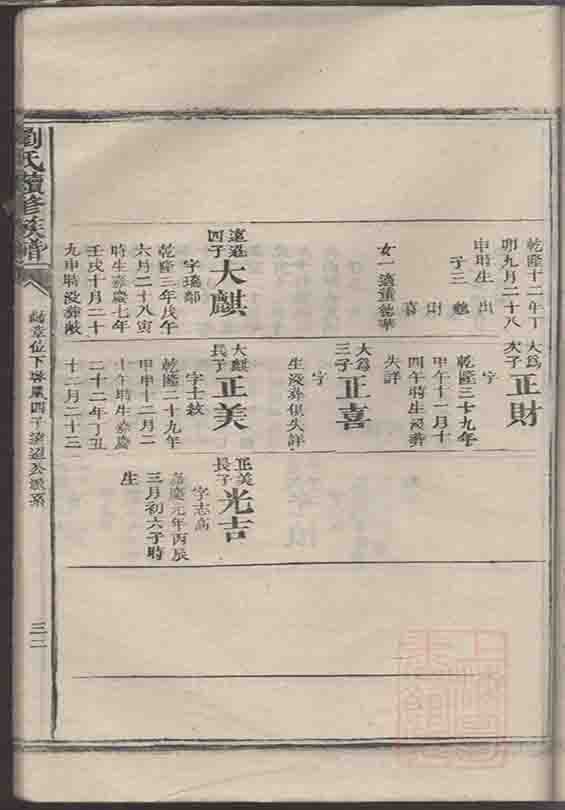 乾隆十二年丁
卯九月二十八
申時生 出
子三
財
喜
女一適
遠
四子
大麒
字
乾隆三年戊午
六月二十八寅
時生嘉慶七年
壬戌十月二十
九申時没葬
大為
次子
正財
字
乾隆三十九年
甲午十一月十
四午時生没葬
失詳
大為
三子
正喜
字
生没葬俱失詳
大麒
長子
正美
字士
乾隆二十九年
甲申十二月二
十午時生嘉慶
二十二年丁丑
十二月二十三
正美
長子
光吉
字志高
嘉慶元年丙辰
三月初六子時
生
劉氏續修族譜
位下 四子
三二
上海